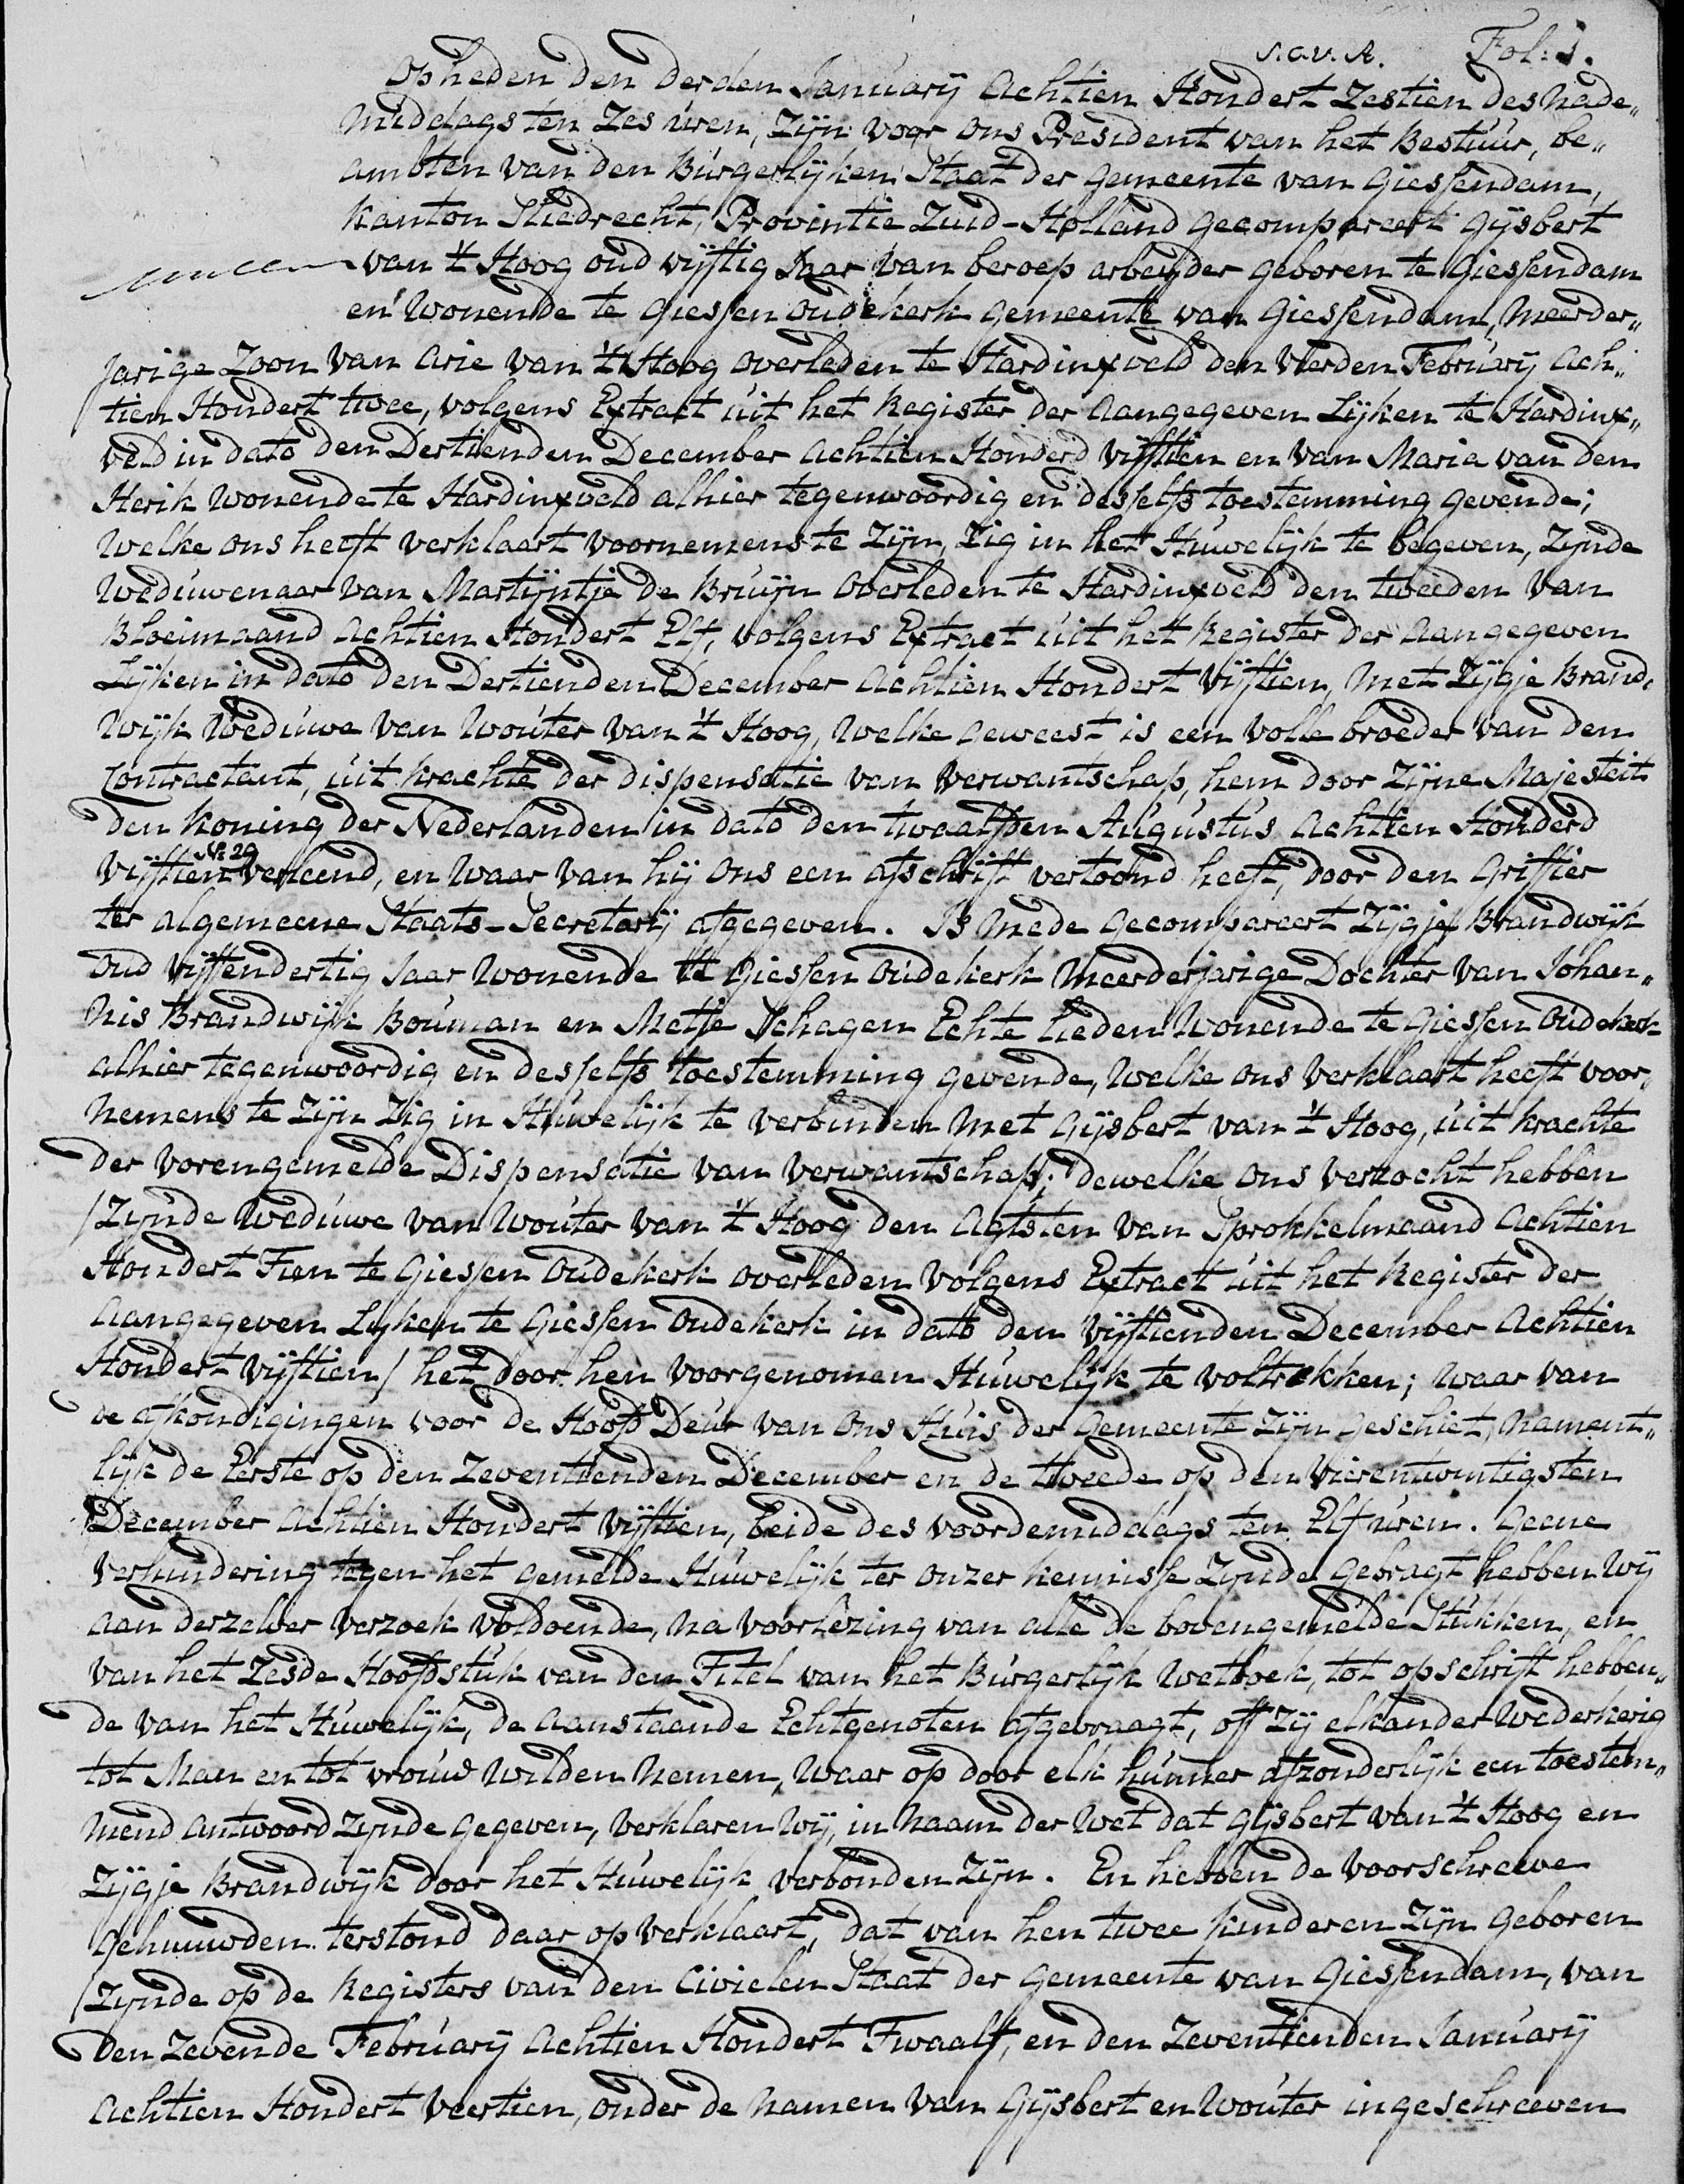 S.a.v.A. Fol: 1.
Op heden den derden January Achtien Hondert Zestien des nade„
middags ten Zes uren, Zijn voor Ons President van het Bestuur, be„
ambten van den Burgerlijken Staat der Gemeente van Giessendam,
Kanton Sliedrecht, Provintie Zuid-Holland Gecompareert Gijsbert
van 't Hoog oud vijftig Jaar van beroep arbeijder geboren te Giessendam
en Wonende te Giessen oudekerk Gemeente van Giessendam, meerder„
Jarige Zoon van Arie van 't Hoog overleden te Hardinxveld den Vierden Februarij Ach„
tien Hondert twee, volgens Extract uit het Register der Aangegeven Lijken te Hardinx„
veld in dato den Dertienden December Achtien Honderd Vijftien en van Maria van den
Herik Wonende te Hardinxveld alhier tegenwoordig en desselfs toestemming gevende;
Welke ons heeft verklaart voornemens te Zijn, Zig in het Huwelijk te begeven, Zijnde
Weduwenaar van Martijntje de Bruijn Overleden te Hardinxveld den tweeden van
Bloeimaand Achtien Hondert Elf, volgens Extract uit het Register der Aangegeven
Lijken in dato den Dertienden December Achtien Hondert Vijftien, met Zijgje Brand„
wijk Weduwe van Wouter van 't Hoog, Welke geweest is een volle broeder van den
Contractant, uit krachte der dispensatie van Verwantschap, hem door Zijne Majesteit
den Koning der Nederlanden in dato den twaalfden Augustus Achttien Honderd
Vijftien No 29 verleend, en waar van hij Ons een afschrift vertoond heeft, door den Griffier
ter algemeene Staats-Secretarij afgegeven. Is mede Gecompareert Zijgje Brandwijk
Oud Vijfendertig Jaar Wonende te Giessen Oudekerk Meerderjarige Dochter van Johan„
nis Brandwijk Bouman en Metje Schagen Echte lieden Wonende te Giessen Oudekerk
alhier tegenwoordig en desselfs toestemming gevende, Welke ons Verklaart heeft voor„
Nemens te Zijn Zig in Huwelijk te verbinden met Gijsbert van 't Hoog, uit krachte
der vorengemelde Dispensatie van verwantschap; dewelke ons verzocht hebben
/Zijnde Weduwe van Wouter van 't Hoog den Agtsten van Sprokkelmaand Achtien
Hondert Tien te Giessen Oudekerk overleden volgens Extract uit het Register der
Aangegeven Lijken te Giessen Oudekerk in dato den Vijftienden December Achtien
Hondert Vijftien/ het door hen Voorgenomen Huwelijk te voltrekken; waar van
de afkondigingen voor de Hoofd Deur van Ons Huis der Gemeente Zijn geschiet, nament„
lijk de Eerste op den Zeventienden December en de tweede op den Vierentwintigsten
December Achtien Hondert Vijftien, beide des voordemiddags ten Elf uren. Geene
Verhindering tegen het gemelde Huwelijk ter onzer kennisse Zijnde gebragt hebben Wij
aan derzelver verzoek voldoende, na voorlezing van alle de bovengemelde Stukken, en
van het Zesde Hoofdstuk van den Titel van het Burgerlijk Wetboek, tot opschrift hebben„
de van het Huwelijk, de Aanstaande Echtgenoten afgevraagt, off Zij elkander Wederkerig
tot Man en tot vrouw Wilden Nemen, Waar op door elk hunner afzonderlijk een toestem„
mend Antwoord Zijnde gegeven, verklaren Wij, in Naam der Wet dat Gijsbert van 't Hoog en
Zijgje Brandwijk door het Huwelijk verbonden Zijn. En hebben de Voorschreeve
Gehuwden terstond daar op verklaart, dat van hen twee kinderen Zijn geboren
/Zijnde op de Registers van den Civielen Staat der Gemeente van Giessendam, van
den Zevende February Achtien Hondert Twaalf, en den Zeventienden January
Achtien Hondert Veertien, onder de Namen van Gijsbert en Wouter ingeschreeven